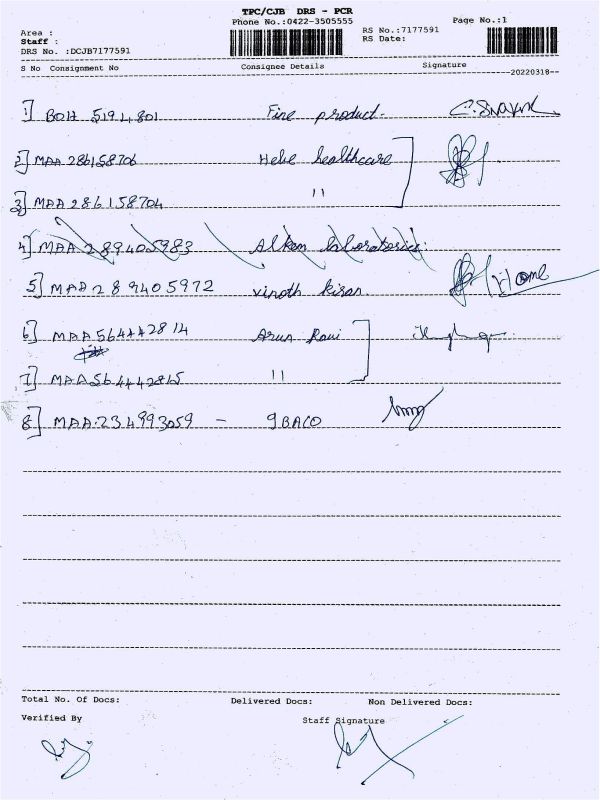 TPC/CJB DRS - PCR
Phone No.:0422-3505555 Page No.:1
Area : RS No.:7177591
Staff : RS Date:
DRS No. :DCJB7177591
S No Consignment No Consignee Details Signature
--20220318--
1] BOH 5194801 Fine product. C.
2] MAA 286158706 Hebe healthcare
3] MAA 286158704 "
4] MAA 289405983 Alkem laboratories.
5] MAA 289405972 vinoth kiran. Home
6] MAA 564442814 Arun Ravi
7] MAA 564442815 "
8] MAA 234993059 -
Total No. Of Docs: Delivered Docs: Non Delivered Docs:
Verified By Staff Signature